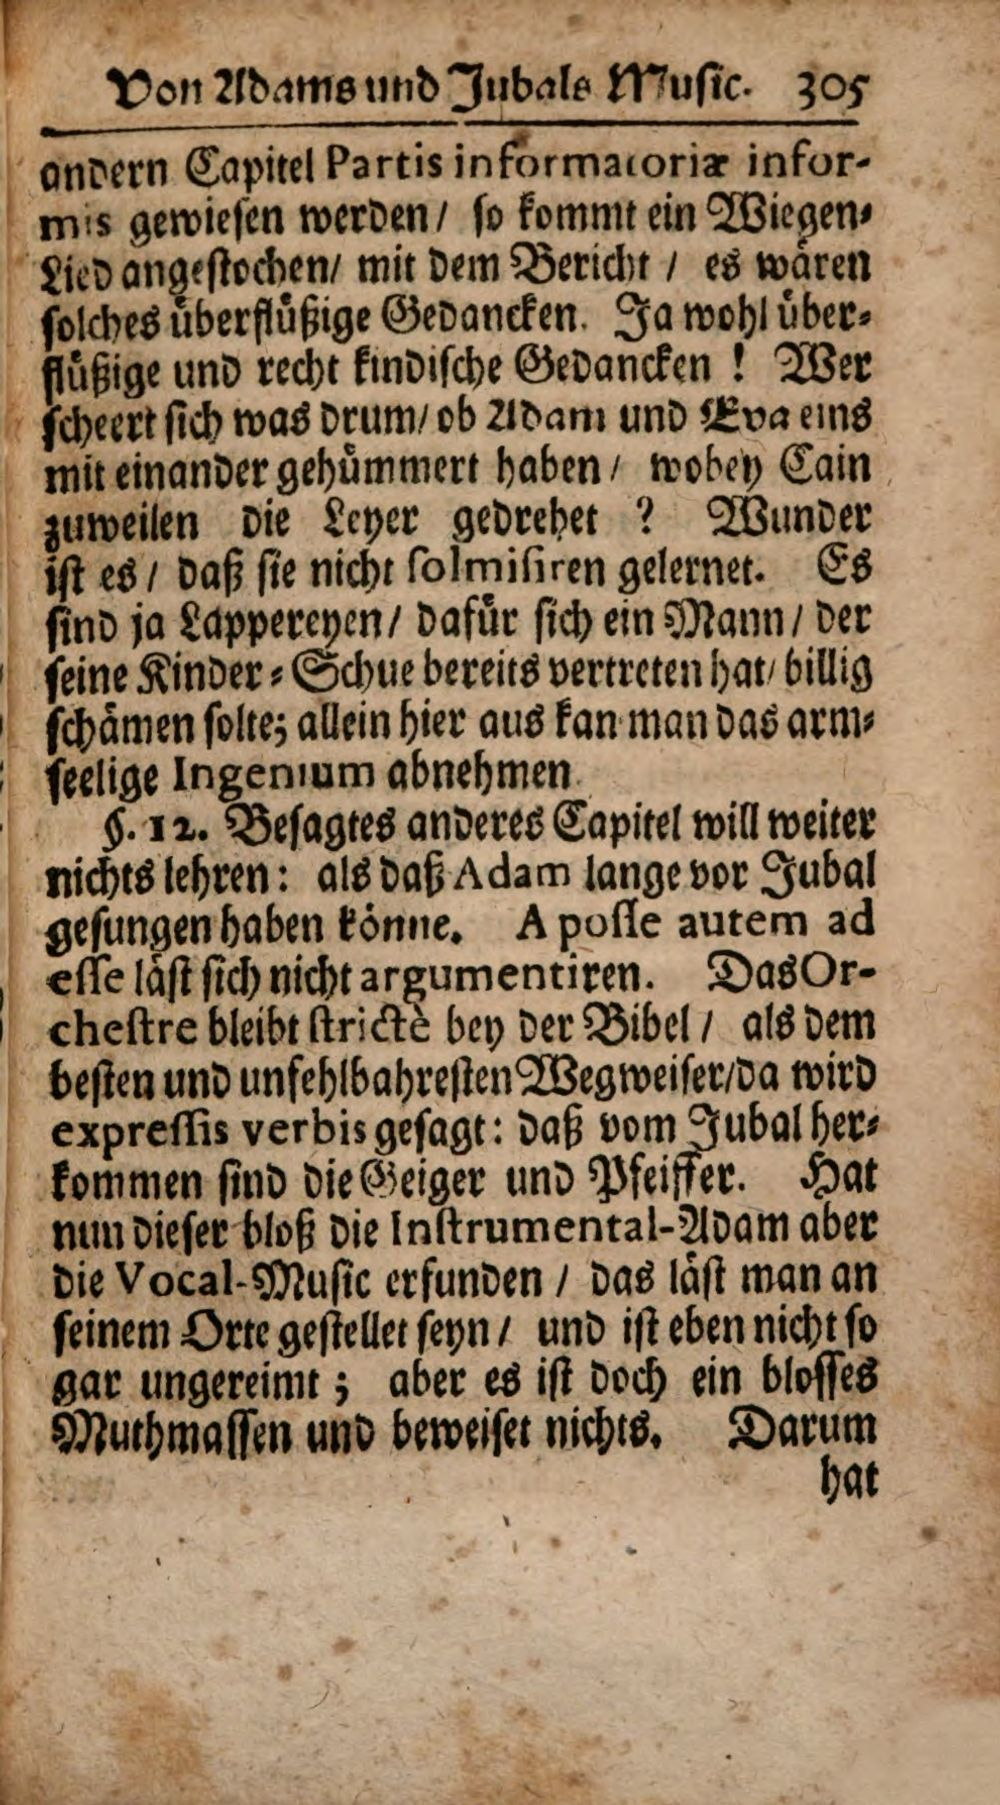 Von Adams und Jubals Music. 305
andern Capitel Partis informatoriæ infor-
mis gewiesen werden/ so kommt ein Wiegen-
Lied angestochen/ mit dem Bericht / es wären
solches überflüßige Gedancken. Ja wohl über-
flüßige und recht kindische Gedancken ! Wer
scheert sich was drum/ ob Adam und Eva eins
mit einander gehümmert haben / wobey Cain
zuweilen die Leyer gedrehet ? Wunder
ist es / daß sie nicht solmisiren gelernet. Es
sind ja Lappereyen/ dafür sich ein Mann / der
seine Kinder-Schue bereits vertreten hat/ billig
schämen solte; allein hier aus kan man das arm-
seelige Ingenium abnehmen
§. 12. Besagtes anderes Capitel will weiter
nichts lehren: als daß Adam lange vor Jubal
gesungen haben könne. A posse autem ad
esse läst sich nicht argumentiren. Das Or-
chestre bleibt strictè bey der Bibel / als dem
besten und unfehlbahresten Wegweiser/da wird
expressis verbis gesagt: daß vom Jubal her-
kommen sind die Geiger und Pfeiffer. Hat
nun dieser bloß die Instrumental-Adam aber
die Vocal-Music erfunden / das läst man an
seinem Orte gestellet seyn / und ist eben nicht so
gar ungereimt ; aber es ist doch ein blosses
Muthmassen und beweiset nichts. Darum
hat